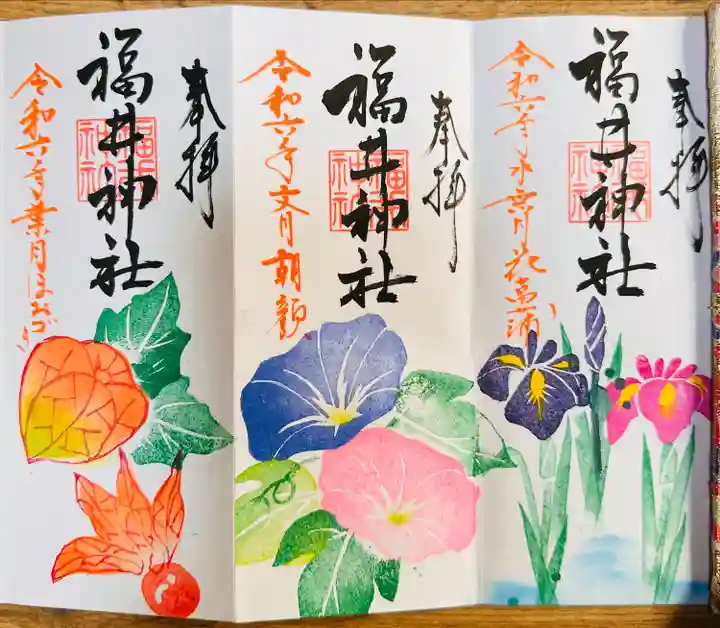 奉拝
福井神社
令和六年水無月花菖蒲
奉拝
福井神社
令和六年文月朝顔
奉拝
福井神社
令和六年葉月ほおずき